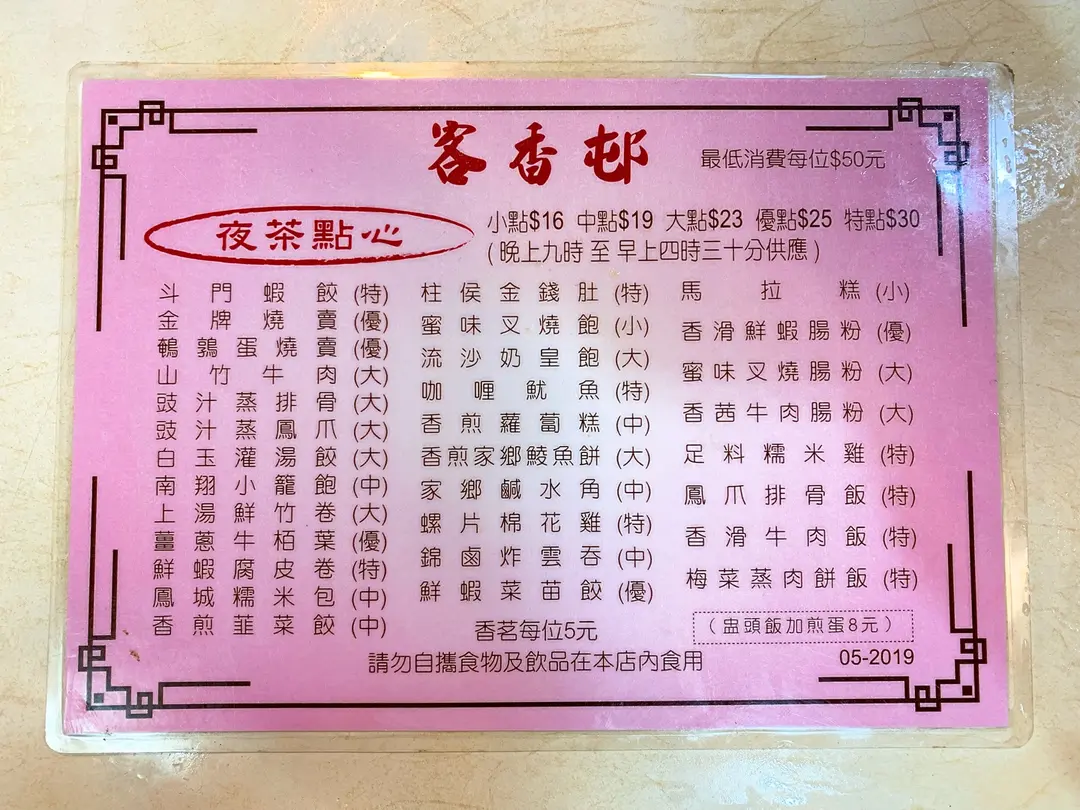 客香邨
最低消費每位$50元
夜茶點心
小點$16 中點$19 大點$23 優點$25 特點$30
(晚上九時至早上四時三十分供應)
斗門蝦餃(特)
金牌燒賣(優)
鵪鶉蛋燒賣(優)
山竹牛肉(大)
豉汁蒸排骨(大)
豉汁蒸鳳爪(大)
白玉灌湯餃(大)
南翔小籠飽(中)
上湯鮮竹卷(大)
薑蔥牛栢葉(優)
鮮蝦腐皮卷(特)
鳳城糯米包(中)
香煎韮菜餃(中)
柱侯金錢肚(特)
蜜味叉燒飽(小)
流沙奶皇飽(大)
咖喱魷魚(特)
香煎蘿蔔糕(中)
香煎家鄉鯪魚餅(大)
家鄉鹹水角(中)
螺片棉花雞(特)
錦鹵炸雲吞(中)
鮮蝦菜苗餃(優)
馬拉糕(小)
香滑鮮蝦腸粉(優)
蜜味叉燒腸粉(大)
香茜牛肉腸粉(大)
足料糯米雞(特)
鳳爪排骨飯(特)
香滑牛肉飯(特)
梅菜蒸肉餅飯(特)
(盅頭飯加煎蛋8元)
香茗每位5元
請勿自攜食物及飲品在本店內食用
05-2019